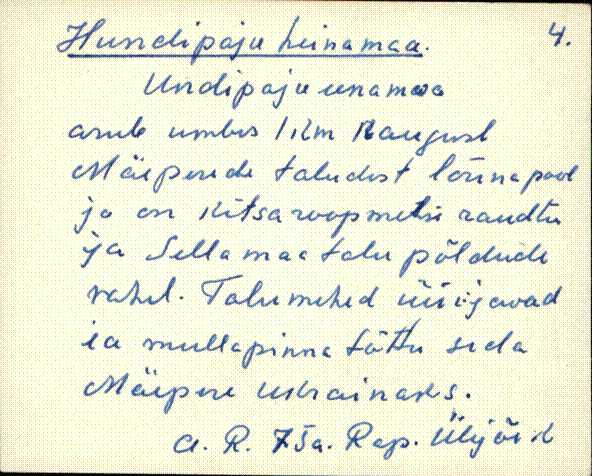 Hundipaju heinamaa. 4.
Undipaju einamaa
asub umbes 1 km kaugusel
Mäeperede taludest lõunapool
ja on Kitsaroopmelise raudtee
ja Sellamaa talu põldude
vahel. Talumehed hüüavad
ea mullapinna tõttu seda
Mäepere Ukrainaks.
A. R. 75a. Rap. Ülejõe k